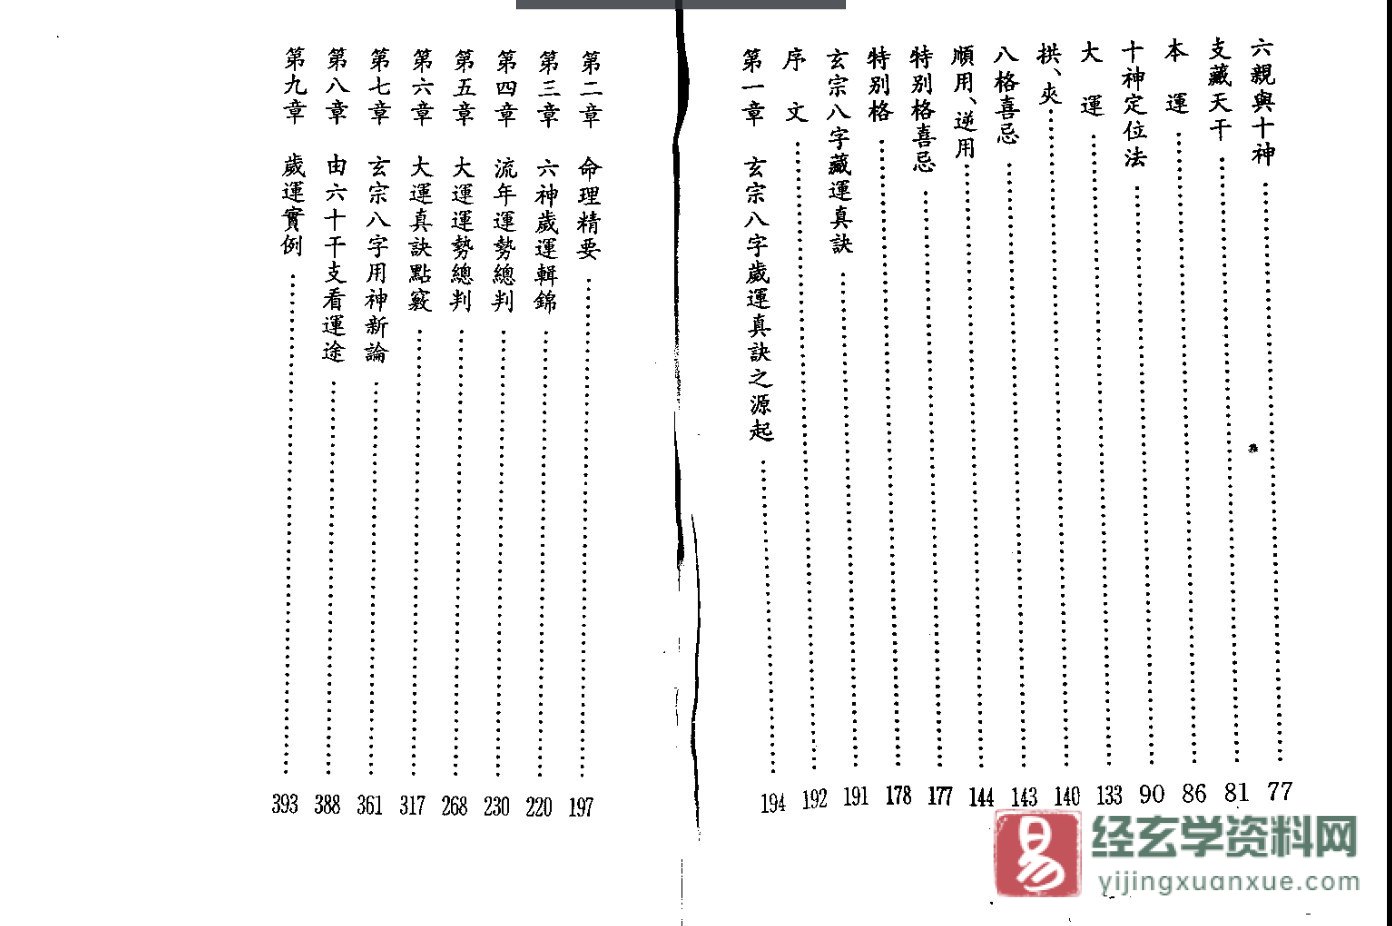 六親與十神 77
支藏天干 81
本運 86
十神定位法 90
大運 133
拱、夾 140
八格喜忌 143
順用、逆用 144
特別格喜忌 177
特別格 178
玄宗八字藏運真訣 191
序文 192
第一章 玄宗八字歲運真訣之源起 194
第二章 命理精要 197
第三章 六神歲運輯錦 220
第四章 流年運勢總判 230
第五章 大運運勢總判 268
第六章 大運真訣點竅 317
第七章 玄宗八字用神新論 361
第八章 由六十干支看運途 388
第九章 歲運實例 393
易
经玄学资料网
yijingxuanxue.com